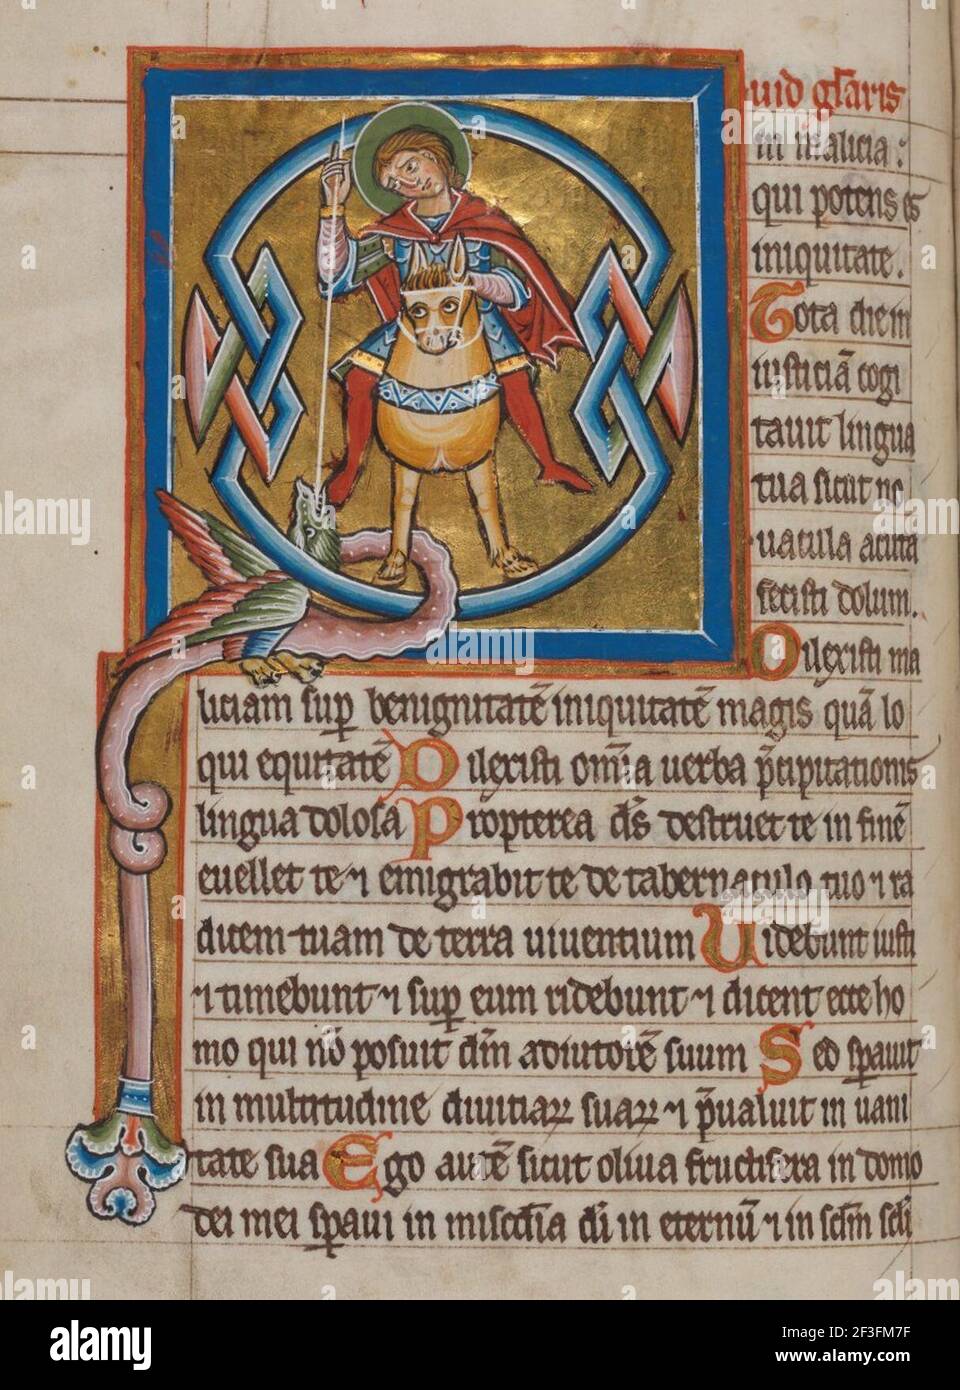 uid gl̄aris
in malicia:
qui potens es
iniquitate.
Tota diem
iusticiā cogi
tauit lingua
tua sicut no
uacula acuta
fecisti dolum.
Dilexisti ma
liciam sup benignitatē iniquitatē magis quā lo
qui equitatē Dilexisti om̄ia uerba p̄cipitationis
lingua dolosa Propterea ds̄ destruet te in finē
euellet te ⁊ emigrabit te de tabernaculo tuo ⁊ ra
dicem tuam de terra uiuentium Uidebunt iusti
⁊ timebunt ⁊ sup eum ridebunt ⁊ dicent ecce ho
mo qui nō posuit dm̄ adiutorē suum Sed sp̄auit
in multitudine diuitiaꝝ suaꝝ ⁊ p̄ualuit in uani
tate sua Ego autē sicut oliua fructifera in domo
dei mei sp̄aui in mis̄cd̄ia di in eternū ⁊ in sc̄lm sc̄li
alamy
Image ID: 2F3FM7F
www.alamy.com